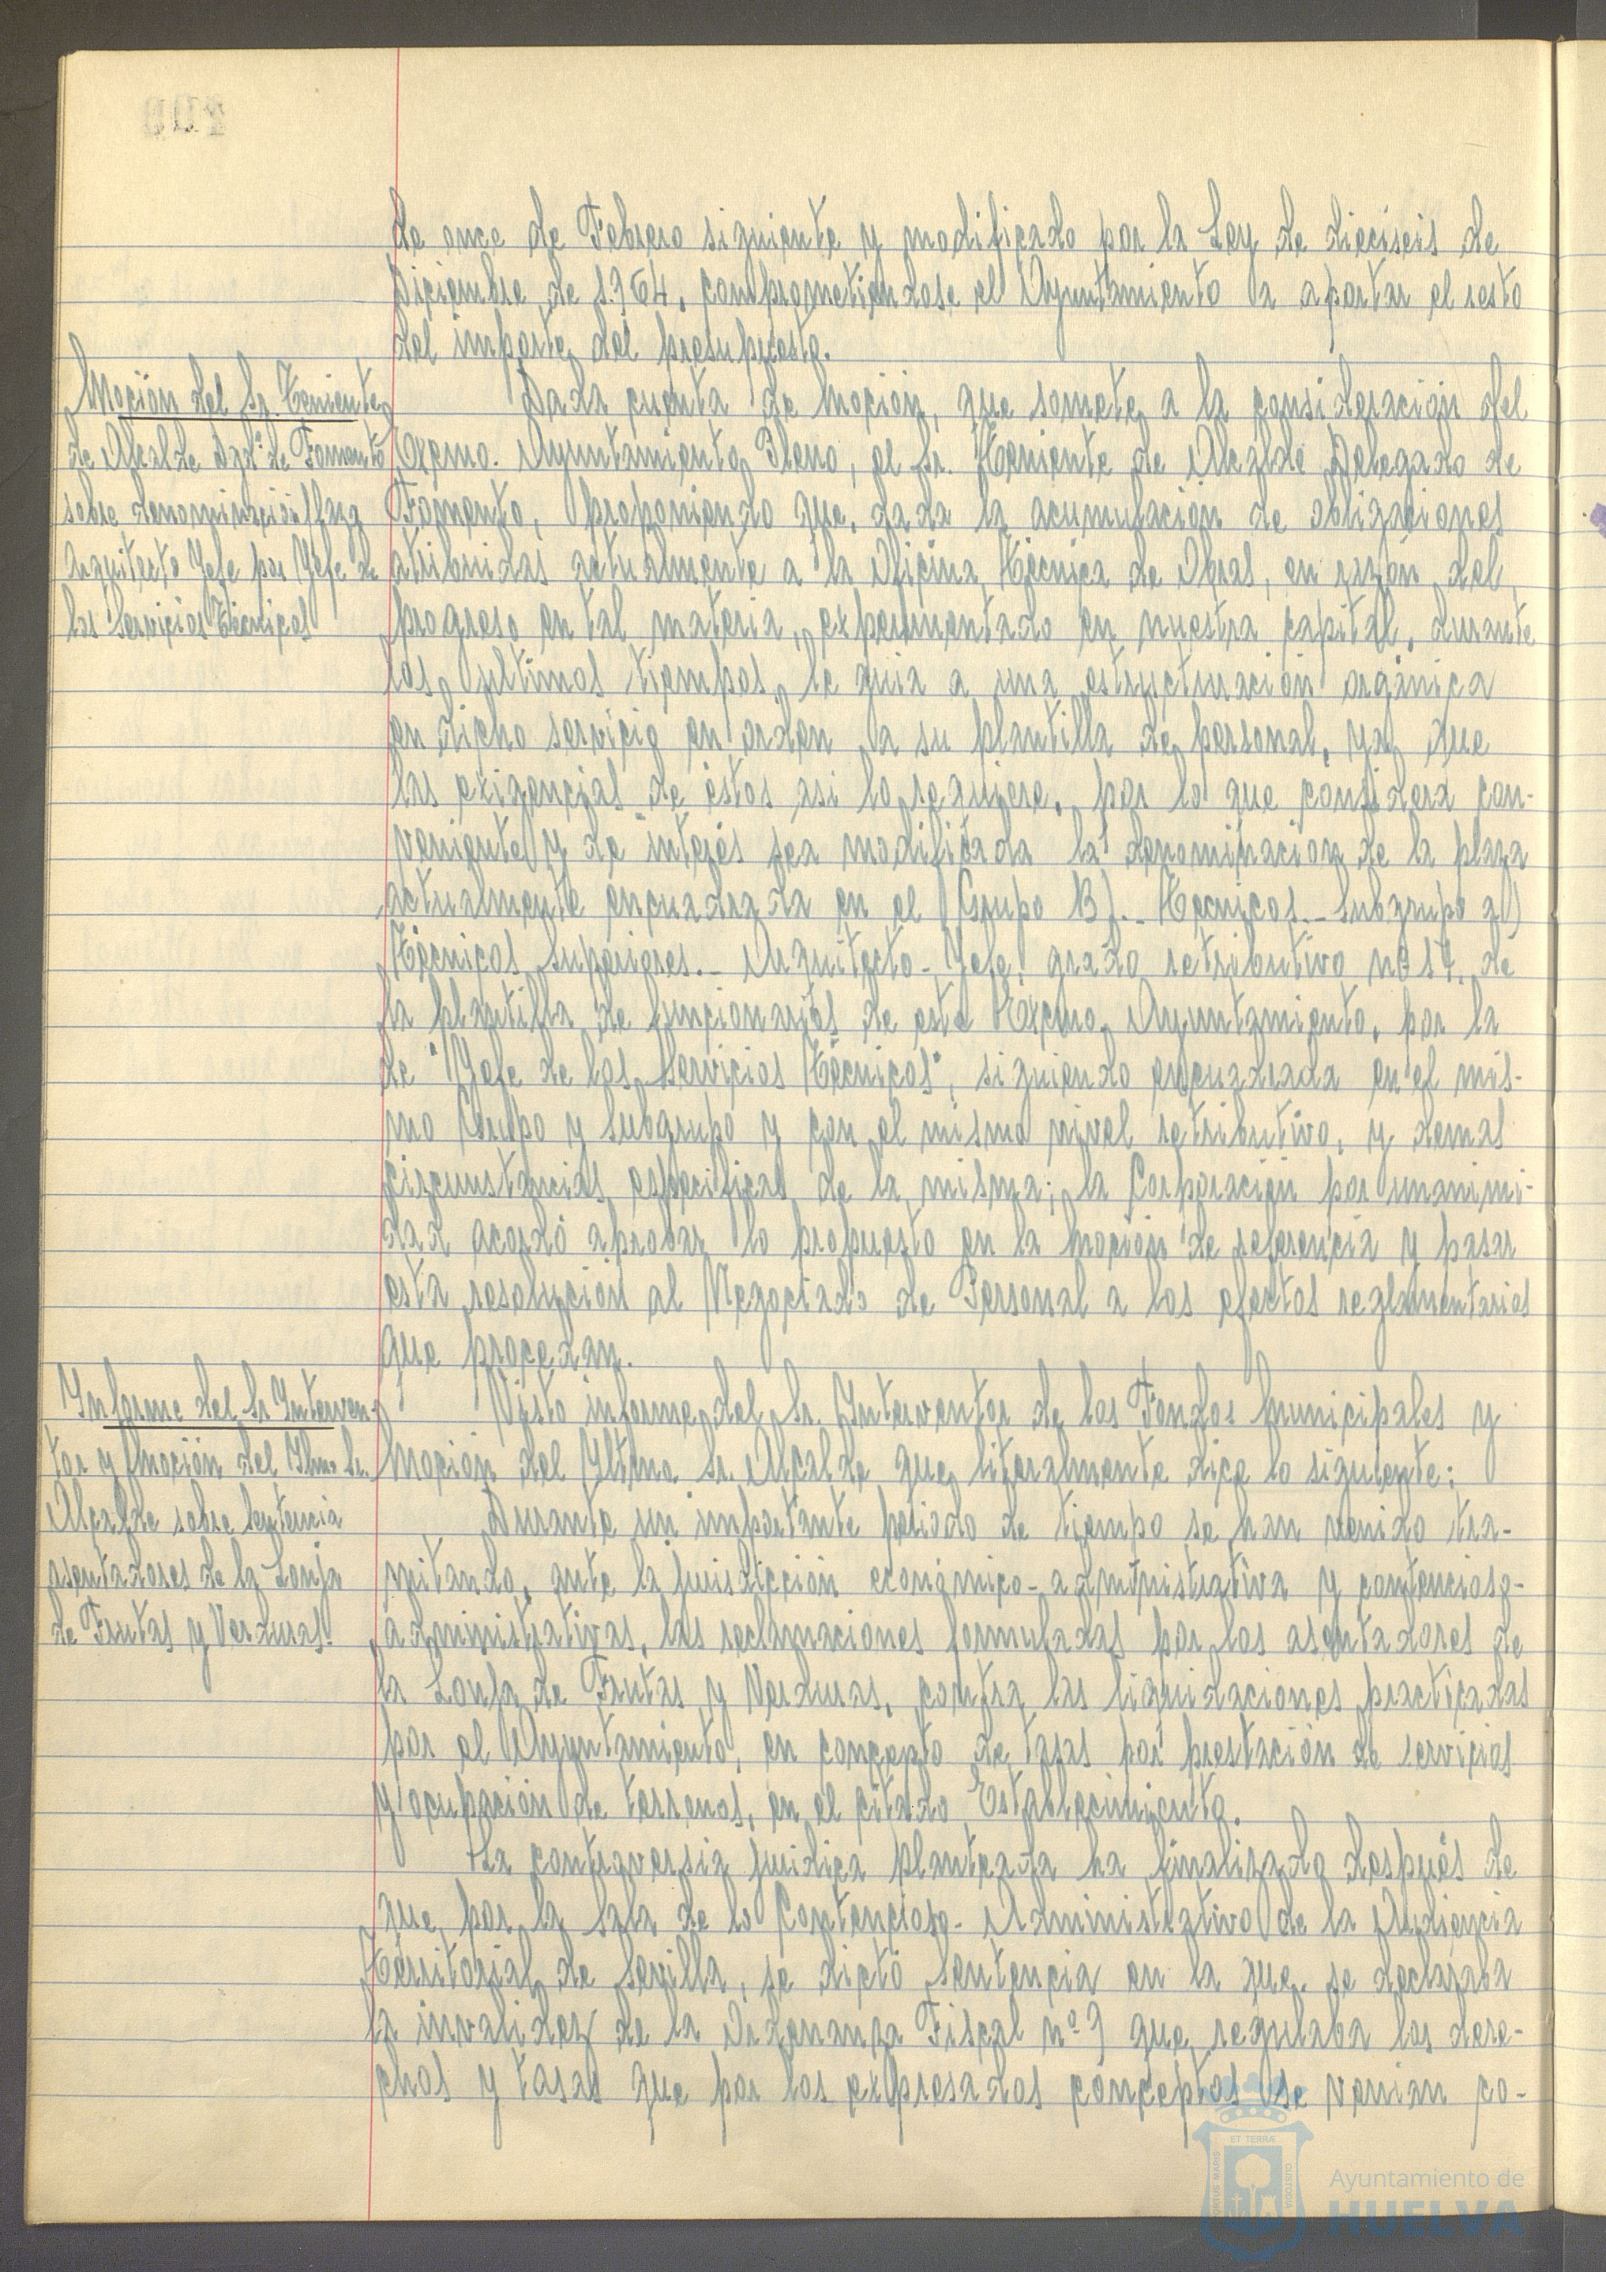 de once de Febrero siguiente y modificado por la Ley de dieciseis de
Diciembre de 1.964, comprometiendose el Ayuntamiento a aportar el resto
del importe del presupuesto.
Moción del Sr. Teniente
de Alcalde Delgº de Fomento
sobre denominación plaza
Arquitecto Jefe por Jefe de
los Servicios Técnicos
Dada cuenta de moción, que somete a la consideración del
Excmo. Ayuntamiento Pleno, el Sr. Teniente de Alcalde Delegado de
Fomento, proponiendo que, dada la acumulación de obligaciones
atribuidas actualmente a la Oficina Técnica de Obras, en razón del
progreso en tal materia, experimentado en nuestra capital, durante
los ultimos tiempos, le guia a una estructuración orgánica
en dicho servicio en orden a su plantilla de personal, ya que
las exigencias de éstos asi lo requiere, por lo que considera con-
veniente y de interés sea modificada la denominación de la plaza
actualmente encuadrada en el Grupo B).- Técnicos.- Subgrupo a)
Técnicos Superiores.- Arquitecto-Jefe, grado retributivo nº 17, de
la plantilla de funcionarios de este Excmo. Ayuntamiento, por la
de "Jefe de los Servicios Técnicos", siguiendo encuadrada en el mis-
mo Grupo y subgrupo y con el mismo nivel retributivo, y demas
circunstancias especificas de la misma; la Corporación por unanimi-
dad acordó aprobar lo propuesto en la moción de referencia y pasar
esta resolución al Negociado de Personal a los efectos reglamentarios
que procedan.
Informe del Sr Interven-
tor y moción del Iltmo Sr.
Alcalde sobre sentencia
asentadores de la Lonja
de Frutas y Verduras.
Visto informe del Sr. Interventor de los Fondos Municipales y
moción del Iltmo. Sr. Alcalde que literalmente dice lo siguiente:
Durante un importante periodo de tiempo se han venido tra-
mitando, ante la jurisdicción económico-administrativa y contencioso-
administrativas, las reclamaciones formuladas por los asentadores de
la Lonja de Frutas y Verduras, contra las liquidaciones practicadas
por el Ayuntamiento, en concepto de tasas por prestación de servicios
y ocupación de terrenos, en el citado Establecimiento.
La controversia juridica planteada ha finalizado después de
que, por la Sala de lo Contencioso-Administrativo de la Audiencia
Territorial de Sevilla, se dictó sentencia en la que se declaraba
la invalidez de la Ordenanza Fiscal nº 9 que regulaba los dere-
chos y tasas que por los expresados conceptos se venian co-
ET TERRÆ
PORTUS MARIS
CUSTODIA
Ayuntamiento de
HUELVA